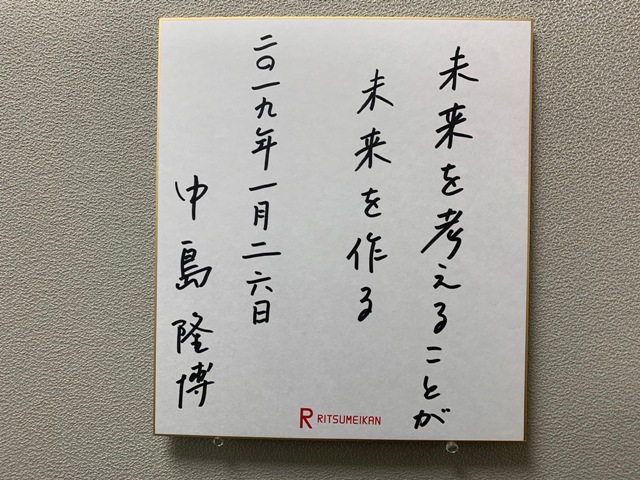 未来を考えることが
未来を作る
二〇一九年一月二六日
中島隆博
R RITSUMEIKAN